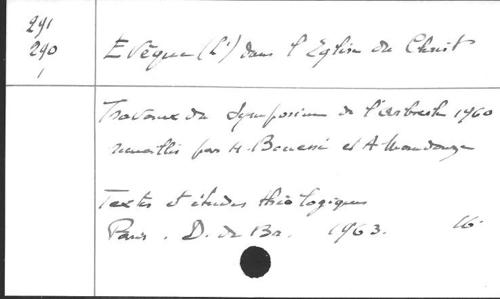 291
290
Evêque (L') dans l'Eglise du Christ
Travaux du Symposium de l'Arbresle 1960
recueillis par H. Bouëssé et A. Mandouze
Textes et études théologiques
Paris. D. de Br. 1963. 16